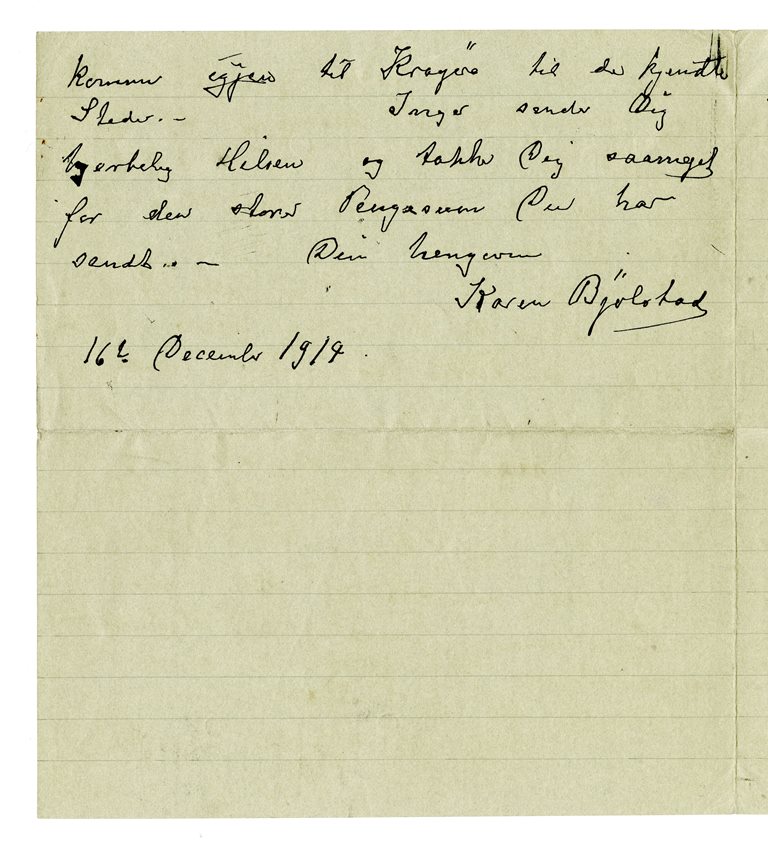 kommer igjen til Kragerö til de kjendte
Steder. -   Inger sender Dig
hjertelig Hilsen og takke Dig saameget
for den store Pengesum Du har
sendt.. -   Din hengivne
Karen Bjölstad
16de December 1914.